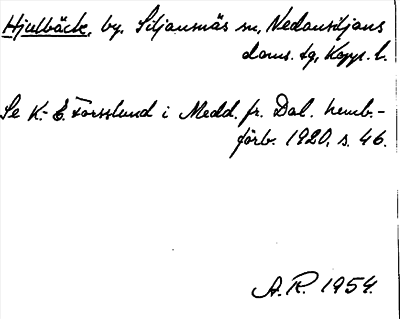 Hjulbäck, by, Siljansnäs sn, Nedansiljans
doms. tg, Kopp. l.
Se K.-E. Forsslund i Medd. fr. Dal. hemb.-
förb. 1920, s. 46.
A.R. 1954.